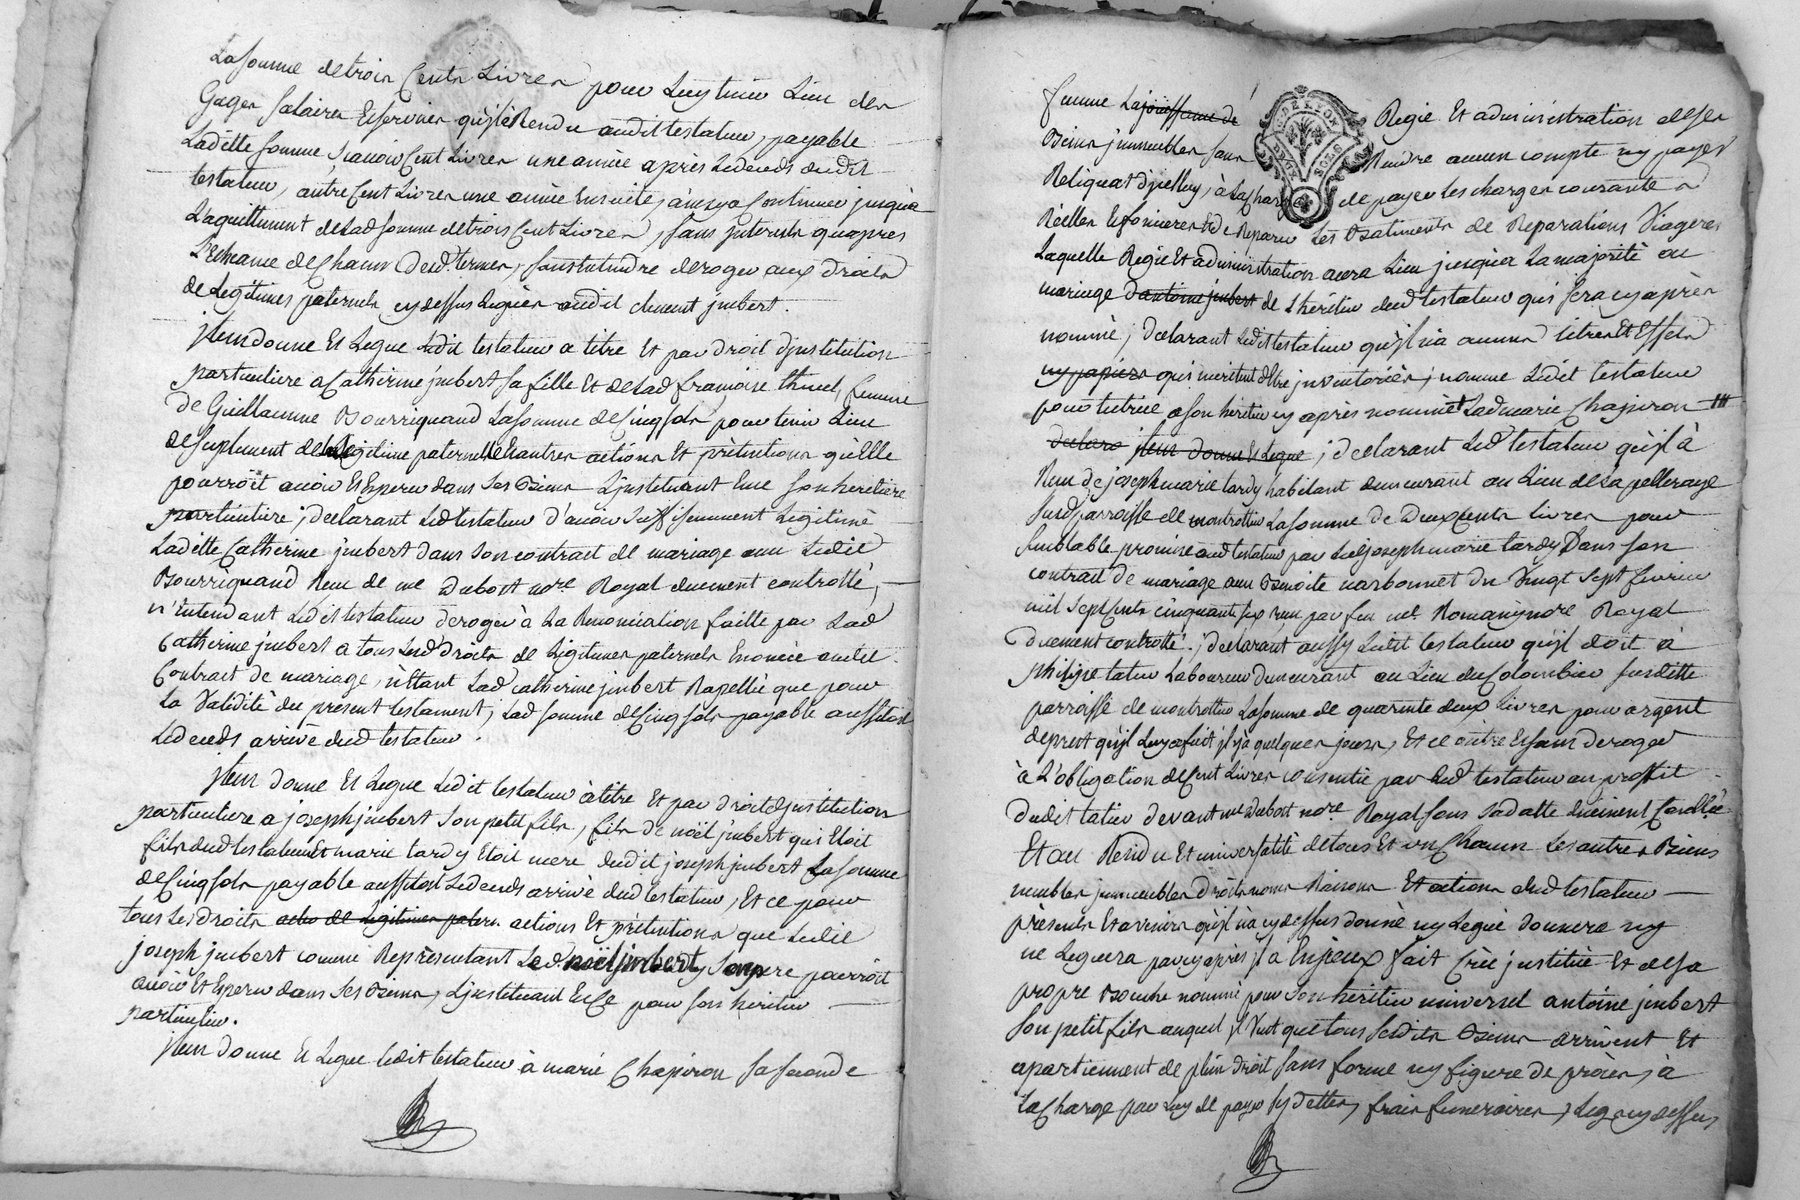 La somme de trois Cents Livres pour Luy tenir Lieu des
Gages salaires Et services qu'jl à Rendu audit testateur, payable
Laditte somme scavoir Cent Livres une année après Le deceds dudit
testateur, autre Cent Livres une année Ensuite, ainsy a Continuer jusqu'a
L'aquittement de Lad somme de trois Cent Livres, sans jnterests qu'apres
L'Echeance de Chacun Desd. termes, sans Entendre deroger aux droits
de Legitimes paternels cy dessus Legués audit clement jmbert.
jtem donne Et Legue Ledit testateur a titre Et par droit d'jnstitution
particuliere a Catherine jmbert sa fille Et de Lad francoise thivel, femme
de Guillaume Bourriquand La somme de Cinq sols pour tenir Lieu
de suplement de Legitime paternelle Et autres actions Et prètentions qu'Elle
pourroit avoir Et Esperer dans ses Biens L'jnstituant Ence son heretière
particuliere; declarant Led testateur d'avoir suffisemment Legitimé
Laditte Catherine jmbert dans son contrat de mariage avec Ledit
Bourriquand Recu de me Dubost nore. Royal duement controllé,
n'Entendant Ledit testateur deroger à La Renonciation faitte par Lad
Catherine jmbert a tous Lesd. droits de Legitimes paternels Enoncée audit
Contract de mariage, n'Etant Lad catherine jmbert Rapellée que pour
La Validité du present testament, Lad somme de Cinq sols payable aussitost
Le deceds arrivé dud testateur.
jtem donne Et Legue Ledit testateur à titre Et par droit d'jnstitution
particuliere a joseph jmbert son petit fils, fils de noël jmbert qui Etoit
fils dud testateur Et marie tardy Etoit mere dudit joseph jmbert La somme
de Cinq sols payable aussitost Le deceds arrivé dud testateur, Et ce pour
tous Les droits actio de Legitimes patern. actions Et prètentions que Ledit
joseph jmbert comme Reprèsentant Led. noël jmbert son pere pourroit
avoir Et Esperer dans ses Biens, L'jnstituant En Ce pour son heritier
particulier.
jtem donne Et Legue Ledit testateur à marie Chapiron sa seconde
femme La joüissance de Regie Et administration de ses
Biens jmmeubles sans Rendre aucun compte ny payer
Reliquat d'jcelluy, à La charge de payer Les charges courantes
Rèelles Et foncieres Et de Reparer Les Batiments de Reparations Viageres
Laquelle Regie Et administration aura Lieu jusqu'a La majorité ou
mariage d'antoine jmbert de L'heritier dud testateur qui sera cy après
nommé, declarant Ledit testateur qu'jl n'a aucuns titres Et Effets
ny papiers qui meritent d'Etre jnventoriés, nomme Ledit testateur
pour tutrice a son heritier cy après nommé Lad marie Chapiron
declare jtem donne Et Legue; declarant Led testateur qu'jl à
Recu de joseph marie tardy habitant demeurant au Lieu de La pelleraye
susd parroisse de montrottier La somme de deux Cents livres pour
semblable promise aud testateur par Led joseph marie tardy Dans son
contrat de mariage avec Benoite narbonnet du Vingt sept fevrier
mil sept Cents cinquante six recu par feu me. Romany nore Royal
duement controllé; declarant aussy Ledit testateur qu'jl doit à
philipe tatier Laboureur demeurant au Lieu du Colombier susditte
parroisse de montrottier La somme de quarente deux livres pour argent
de prest qu'jl Luy a fait jl y'à quelques jours, Et ce outre Et sans deroger
à L'obligation de Cent Livres consentie par Led testateur au proffit
dudit tatier devant me Dubost nore. Royal sous sa datte duement Conllée
Et au Residu Et universalité de tous Et un Chacun Les autres Biens
meubles jmmeubles droits noms Raisons Et actions dud testateur
présents Et avenirs qu'jl n'a cy dessus donné ny Legué donnera ny
ne Leguera par cy après jl a En jceux fait Crée jnstitué Et de sa
propre Bouche nommé pour son heritier universel antoine jmbert
son petit fils auquel jl Veut que tous sesdits Biens arrivent Et
apartiennent de plein droit sans forme ny figure de procès, à
La Charge par Luy de payer ses dettes, frais funeraires, Legs cy dessus
G. DE LYON
DEUX SOLS